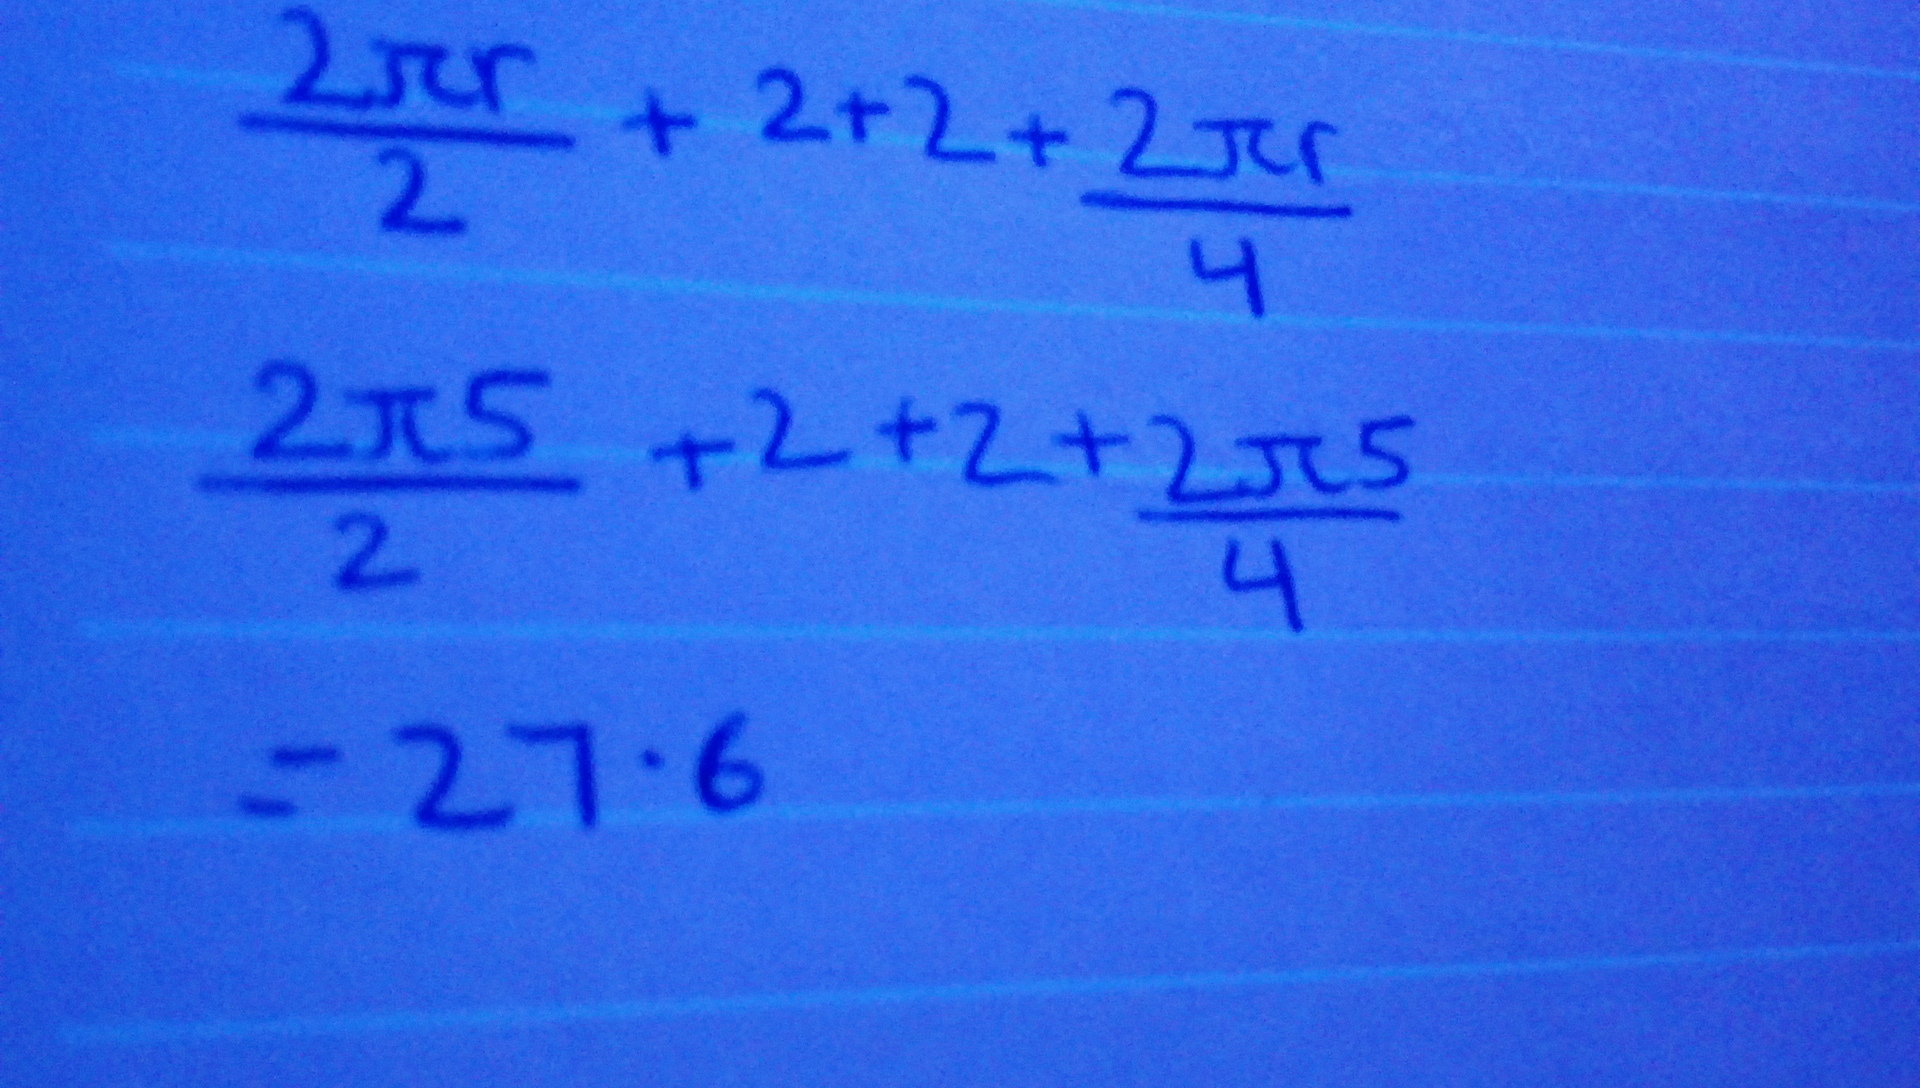 2πr/2 + 2+2 + 2πr/4
2π5/2 +2 +2 + 2π5/4
= 27.6